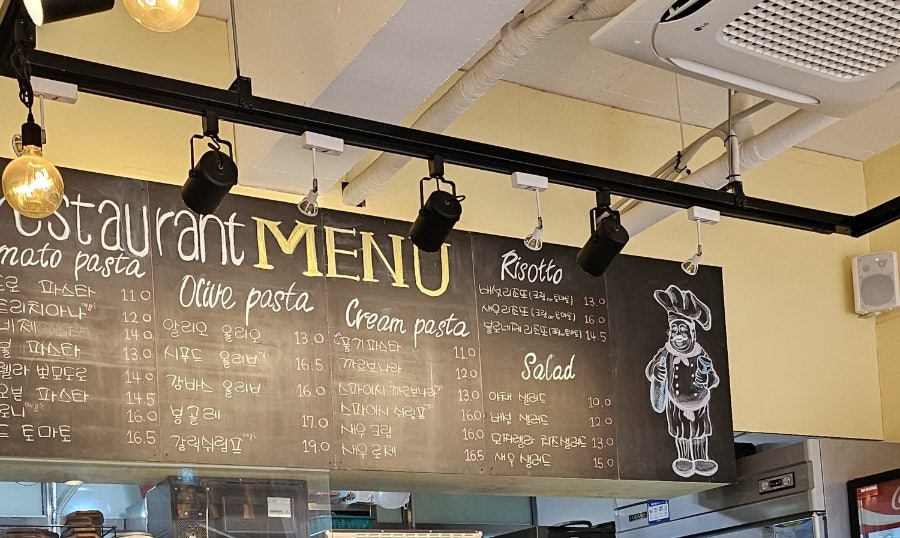 estaurant MENU
mato pasta
로 파스타 11.0
트리치아나 12.0
네제 14.0
널 파스타 13.0
렐라 뽀모도로 14.0
모넬 파스타 14.5
로니 16.0
드 토마토 16.5
Olive pasta
알리오 올리오 13.0
시푸드 올리브 16.5
감바스 올리브 16.0
봉골레 17.0
갈릭쉬림프 19.0
Cream pasta
풍기파스타 11.0
까르보나라 12.0
스파이시 까르보나라 13.0
스파이시 쉬림프 16.0
새우크림 16.0
새우로제 16.5
Risotto
버섯리조또(크림or토마토) 13.0
새우리조또(크림or토마토) 16.0
볼로네제리조또(크림or토마토) 14.5
Salad
야채 샐러드 10.0
버섯 샐러드 12.0
모짜렐라 치즈샐러드 13.0
새우 샐러드 15.0
LG